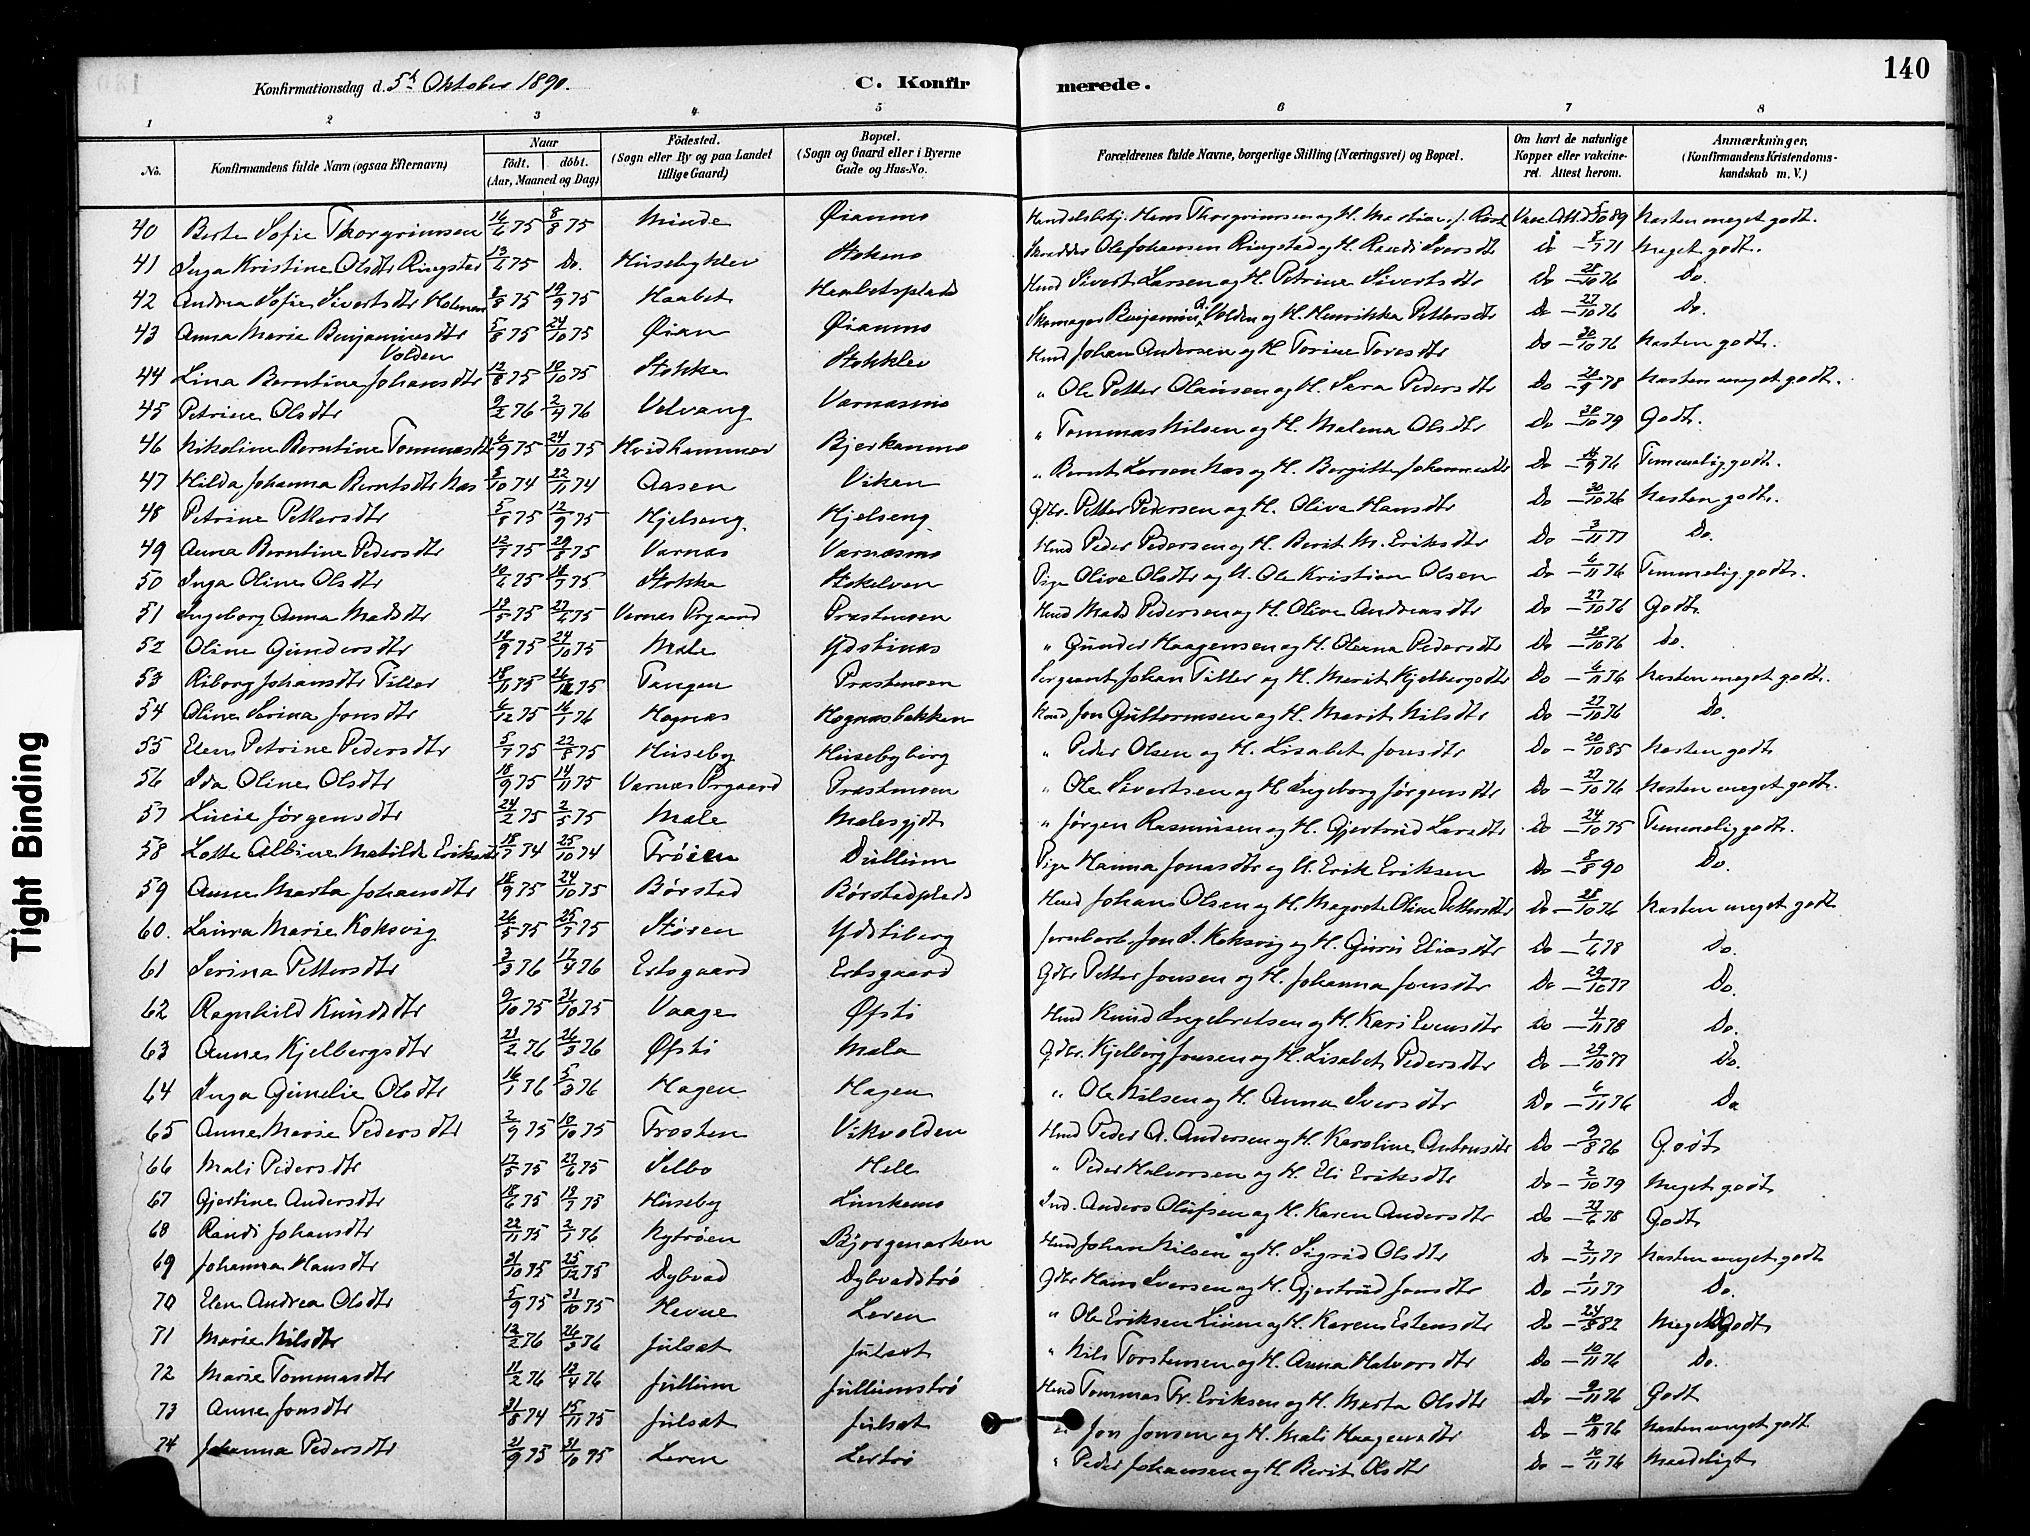 140
Konfirmationsdag d. 5t Oktober 1890. C. Konfirmerede.
1 2 3 4 5 6 7 8
No. Konfirmandens fulde Navn (ogsaa Efternavn) Naar födt. döbt. (Aar, Maaned og Dag) Födested. (Sogn eller By og paa Landet tillige Gaard) Bopæl. (Sogn og Gaard eller i Byerne Gade og Hus-No. Forældrenes fulde Navne, borgerlige Stilling (Næringsvei) og Bopæl. Om havt de naturlige Kopper eller vakcineret. Attest herom. Anmærkninger. (Konfirmandens Kristendomskundskab m. V.)
40 Berte Sofie Thorgrimsen 75 8/8 75 Minde Øianmo Hans Thorgrimsen og H. 89 Næsten meget godt.
41 Inga Kristine Olsdtr Ringstad 13/6 75 Do. Husebyklev Stokmo Skrædder Ole Johansen Ringstad og H. Randi Iversdtr 71 Meget godt.
42 Andrea Sofie Sivertsdtr 8/8 75 19/9 75 Haabet Haabetsplads Hmd Sivert Larsen og H. Petrine Sivertsdtr Do 28/10 76 Do.
43 Anna Marie Benjaminsdtr Volden 5/8 75 24/10 75 Øian Øianmo Skomager Benjamin Volden og H. Henrikka Pettersdtr Do 27/10 76 Do.
44 Lina Berntine Johansdtr 12/8 75 10/10 75 Stokke Stokklev Hmd Johan Andersen og H Torine Toresdtr Do 30/10 76 Næsten godt.
45 Petrine Olsdtr 9/2 76 2/4 76 Velvang Værnæsmo " Ole Petter Olausen og H. Sara Pedersdtr Do 78 Næsten meget godt.
46 Nikoline Berntine Tommasdtr 6/9 75 24/10 75 Hvidhammer Bjerkanmo " Tommas Nilsen og H. Malena Olsdtr Do 30/10 79 Godt.
47 Hilda Johanna Berntsdtr Næs 8/10 74 22/11 74 Aasen Viken " Bernt Larsen Næs og H. Bergitte Johannesdtr Do 76 Temmelig godt.
48 Petrine Pettersdtr 5/8 75 12/9 75 Hjelseng Hjelseng Gbr. Petter Pedersen og H. Oliva Hansdtr Do 30/10 76 Næsten godt.
49 Anna Berntine Pedersdtr 12/7 75 29/8 75 Værnæs Værnæsmo Hmd Peder Pedersen og H. Berit M. Eriksdtr Do 3/11 77 Do.
50 Inga Oline Olsdtr 10/6 75 18/7 75 Stokke Stokelven Pige Olive Olsdtr og U. Ole Kristian Olsen Do 6/11 76 Temmelig godt.
51 Ingeborg Anna Madsdtr 13/5 75 27/6 75 Værnæs Prgaard Præstmoen Hmd Mads Pedersen og H. Olive Andreasdtr Do 27/10 76 Godt.
52 Oline Gundersdtr 18/9 75 24/10 75 Mæle Ydstinæs " Gunder Haagensen og H. Oleana Pedersdtr Do 76 Do.
53 Riborg Johansdtr Tiller 18/11 75 26/12 75 Tangen Præstmoen Sergeant Johan Tiller og H. Marit Kjelbergsdtr Do 6/11 76 Næsten meget godt.
54 Oline Serina Jonsdtr 6/12 75 16/1 76 Hognæs Hognæsbakken Hmd Jon Guttormsen og H. Marit Nilsdtr Do 27/10 76 Do.
55 Elen Petrine Pedersdtr 5/7 75 22/8 75 Huseby Husebyberg " Peder Olsen og H. Lisabet Jonsdtr Do 20/10 85 Næsten godt
56 Ida Oline Olsdtr 18/9 75 14/11 75 Værnæs Prgaard Præstmoen " Ole Sivertsen og H. Ingeborg Jørgensdtr Do 27/10 76 Næsten meget godt.
57 Jørgensdtr 24/2 75 2/5 75 Mæle Mælesgjdt " Jørgen Rasmusen og H. Gjertrud Larsdtr Do 24/10 75 Temmelig godt.
58 Lotte Albine Matilde Eriksdtr 18/7 74 25/10 74 Trøien Dullum Pige Hanna Jonasdtr og U. Erik Eriksen Do 8/8 90 Do.
59 Anne Marta Johansdtr 18/9 75 24/10 75 Børsted Børstadplads Hmd Johans Olsen og H. Magrete Oline Pettersdtr Do 28/10 76 Næsten meget godt
60. Laura Marie Koksvig 26/5 75 25/7 75 Støren Ydstiberg Jernbarb. Jon J. Koksvig og H. Guru Eliasdtr Do 1/6 78 Do.
61 Serina Pettersdtr 3/3 76 17/4 76 Ertsgaard Ertsgaard Gbr Petter Jonsen og H. Johanna Jonsdtr Do 29/10 77 Do.
62 Ragnhild Knudsdtr 9/10 75 31/10 75 Vaage Øfsti Hmd Knud Ingebretsen og H. Kari Evensdtr Do 4/11 78 Do.
63 Anne Kjelbergsdtr 21/2 76 26/3 76 Øfsti Mæla Gbr. Kjelberg Jonsen og H. Lisabet Pedersdtr Do 29/10 77 Do.
64 Inga Gunelie Olsdtr 16/1 76 5/3 76 Hagen Hagen " Ole Nilsen og H. Anna Iversdtr Do 6/11 76 Do
65 Anne Marie Pedersdtr 2/9 75 10/10 75 Frosten Vikvolden Hmd Peder A. Andersen og H. Karoline Antonsdtr Do 9/8 76 Godt
66 Mali Pedersdtr 17/5 75 27/6 75 Selbo Hell " Peder Halvorsen og H. Eli Eriksdtr Do 2/10 79 Meget godt
67 Gjertine Andersdtr 18/6 75 18/7 75 Huseby Ind. Anders Olufsen og H. Karen Andersdtr Do 78 Godt
68 Randi Johansdtr 22/11 75 2/1 76 Nytrøen Bjørgmarken Hmd Johan Nilsen og H. Sigrid Olsdtr Do 2/11 77 Næsten meget godt
69 Johanna Hansdtr 31/10 75 25/12 75 Dybvad Dybvadstrø Gbr Hans Iversen og H. Gjertrud Jonsdtr Do 1/11 77 Do.
70 Elen Andrea Olsdtr 5/9 75 31/10 75 Hevne Leren " Ole Eriksen og H. Karen Estensdtr Do 82 Meget Godt
71 Marie Nilsdtr 12/2 76 26/3 76 Julsæt Julsæt " Nils Torstensen og H. Anna Halvorsdtr Do 10/11 76 Do.
72 Marie Tommasdtr 11/2 76 13/4 76 Jullum Jullumstrø Hmd Tommas Fr. Eriksen og H. Marta Olsdtr Do 9/11 76 Godt
73 Anne Jonsdtr 31/8 74 15/11 75 Julsæt Julsæt " Jon Jonsen og H. Mali Haagensdtr Do 10/11 76 Næsten meget godt
74 Johanna Pedersdtr 21/9 75 31/10 75 Leren Lertrø " Peder Johansen og H. Berit Olsdtr Do 10/11 76 Maadeligt
Tight Binding